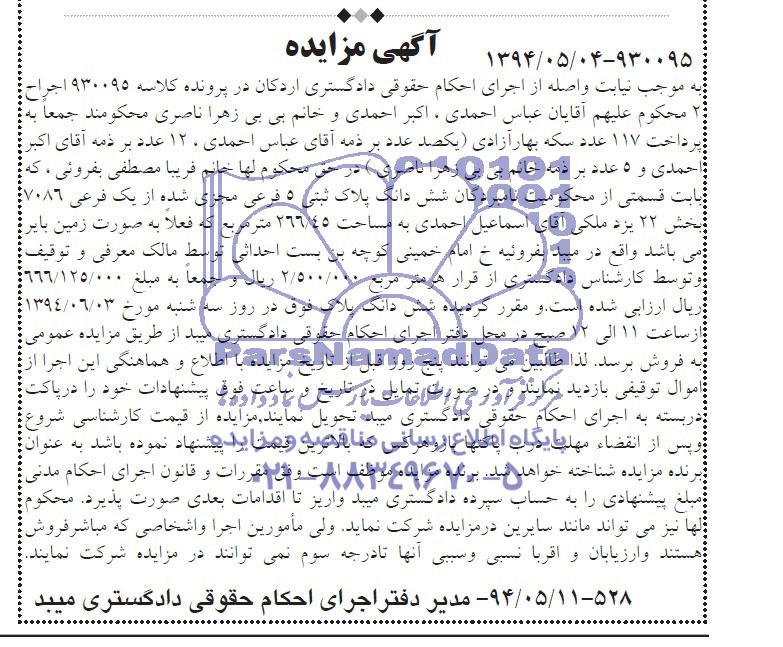 آگهی مزایده
۱۳۹۴/۰۵/۰۴-۹۳۰۰۹۵
به موجب نیابت واصله از اجرای احکام حقوقی دادگستری اردکان در پرونده کلاسه ۹۳۰۰۹۵ اجراح
۲ محکوم علیهم آقایان عباس احمدی ، اکبر احمدی و خانم بی بی زهرا ناصری محکومند جمعاً به
پرداخت ۱۱۷ عدد سکه بهارآزادی (یکصد عدد بر ذمه آقای عباس احمدی ، ۱۲ عدد بر ذمه آقای اکبر
احمدی و ۵ عدد بر ذمه خانم بی بی زهرا ناصری ) در حق محکوم لها خانم فریبا مصطفی بفروئی ، که
بابت قسمتی از محکومیت نامبردگان شش دانگ پلاک ثبتی ۵ فرعی مجزی شده از یک فرعی ۷۰۸۶
بخش ۲۲ یزد ملکی آقای اسماعیل احمدی به مساحت ۲۶۶/۴۵ مترمربع که فعلاً به صورت زمین بایر
می باشد واقع در میبد بفروئیه خ امام خمینی کوچه بن بست احداثی توسط مالک معرفی و توقیف
وتوسط کارشناس دادگستری از قرار هر متر مربع ۲/۵۰۰/۰۰۰ ریال و جمعاً به مبلغ ۶۶۶/۱۲۵/۰۰۰
ریال ارزابی شده است.و مقرر گردیده شش دانگ پلاک فوق در روز سه شنبه مورخ ۱۳۹۴/۰۶/۰۳
ازساعت ۱۱ الی ۱۲ صبح در محل دفتر اجرای احکام حقوقی دادگستری میبد از طریق مزایده عمومی
به فروش برسد. لذا طالبین می توانند پنج روز قبل از تاریخ مزایده با اطلاع و هماهنگی این اجرا از
اموال توقیفی بازدید نمایند و در صورت تمایل در تاریخ و ساعت فوق پیشنهادات خود را درپاکت
دربسته به اجرای احکام حقوقی دادگستری میبد تحویل نمایند.مزایده از قیمت کارشناسی شروع
وپس از انقضاء مهلت درب پاکتها باز وهرکس که بالاترین قیمت را پیشنهاد نموده باشد به عنوان
برنده مزایده شناخته خواهد شد. برنده مزایده موظف است وفق مقررات و قانون اجرای احکام مدنی
مبلغ پیشنهادی را به حساب سپرده دادگستری میبد واریز تا اقدامات بعدی صورت پذیرد. محکوم
لها نیز می تواند مانند سایرین درمزایده شرکت نماید. ولی مأمورین اجرا واشخاصی که مباشرفروش
هستند وارزیابان و اقربا نسبی وسببی آنها تادرجه سوم نمی توانند در مزایده شرکت نمایند.
۹۴/۰۵/۱۱-۵۲۸- مدیر دفتراجرای احکام حقوقی دادگستری میبد
ParsNamadData
پایگاه اطلاع رسانی مناقصه و مزایده
۰۲۱-۸۸۳۴۹۶۷۰-۵